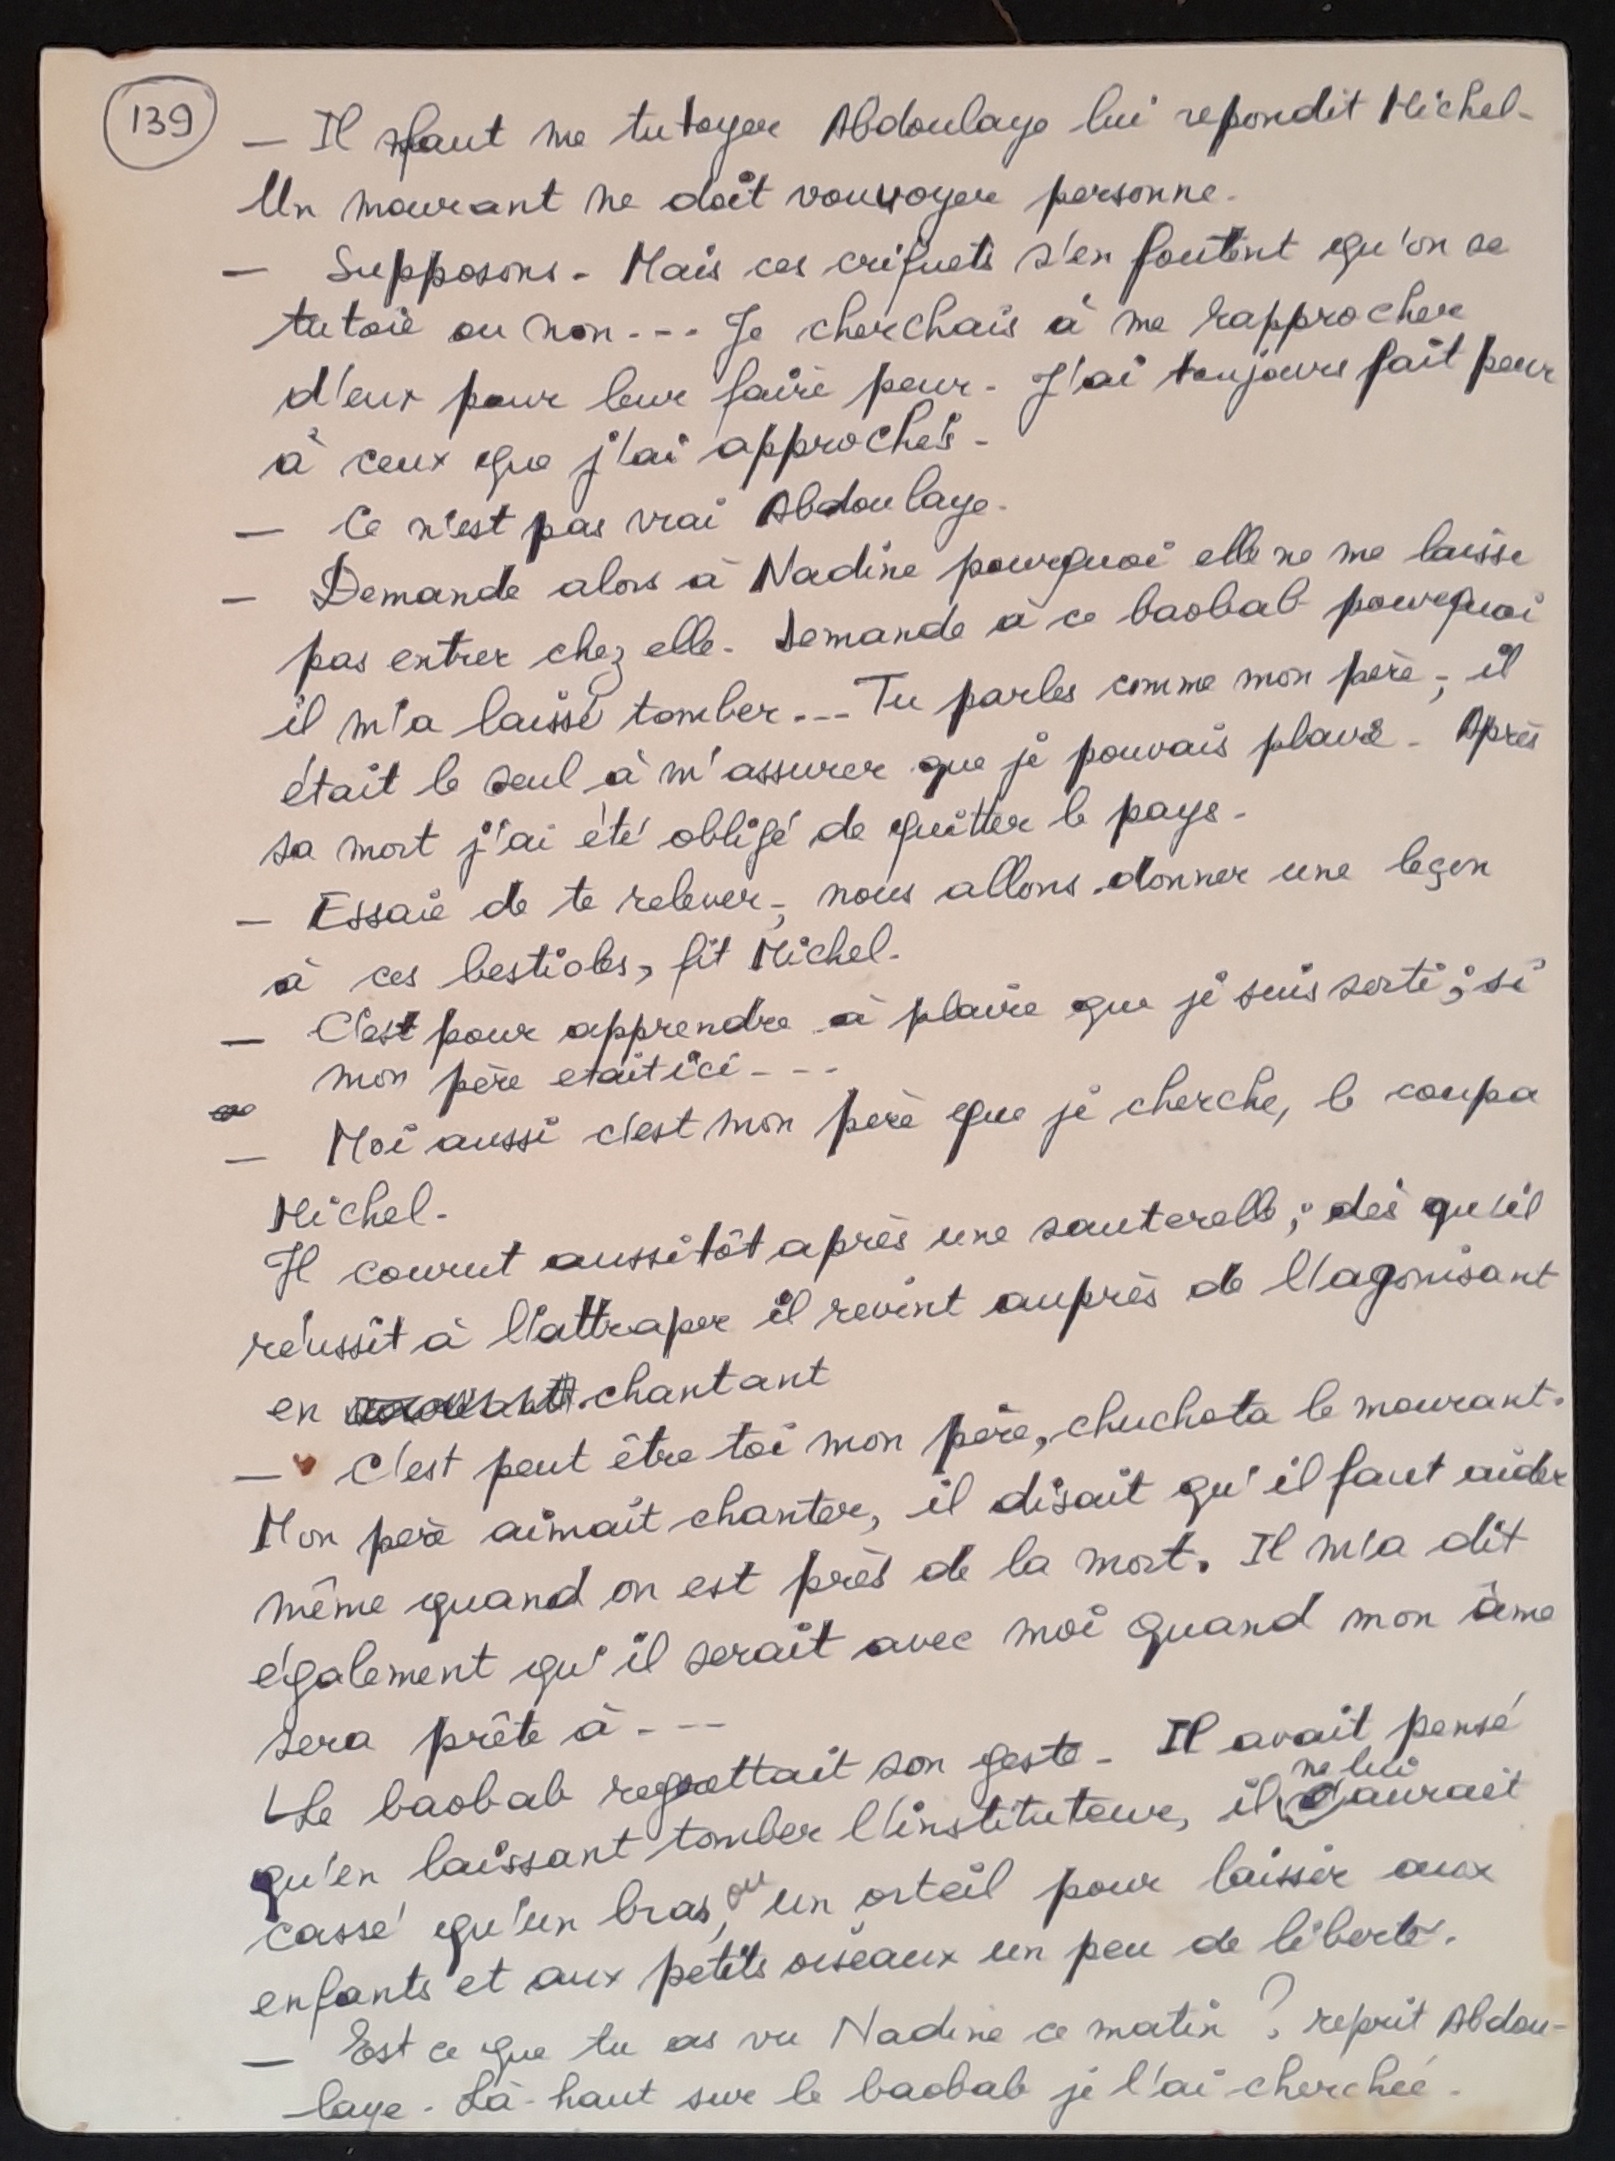 139
— Il faut me tutoyer Abdoulaye lui repondit Michel.
Un mourant ne doit vouvoyer personne.
— Supposons. Mais ces criquets s'en foutent qu'on se
tutoie ou non... Je cherchais à me rapprocher
d'eux pour leur faire peur. J'ai toujours fait peur
à ceux que j'ai approchés.
— Ce n'est pas vrai Abdoulaye.
— Demande alors à Nadine pourquoi elle ne me laisse
pas entrer chez elle. Demande à ce baobab pourquoi
il m'a laissé tomber... Tu parles comme mon père ; il
était le seul à m'assurer que je pouvais plaire. Après
sa mort j'ai été obligé de quitter le pays.
— Essaie de te relever ; nous allons donner une leçon
à ces bestioles, fit Michel.
— C'est pour apprendre à plaire que je suis sorti ; si
mon père etait ici...
— Moi aussi c'est mon père que je cherche, le coupa
Michel.
Il courut aussitôt après une sauterelle ; dès qu'il
réussit à l'attraper il revint auprès de l'agonisant
en chantant
— C'est peut être toi mon père, chuchota le mourant.
Mon père aimait chanter, il disait qu'il faut aider
même quand on est près de la mort. Il m'a dit
également qu'il serait avec moi quand mon âme
sera prête à...
Le baobab regrettait son geste. Il avait pensé
qu'en laissant tomber l'instituteur, il ne lui aurait
cassé qu'un bras, ou un orteil pour laisser aux
enfants et aux petits oiseaux un peu de liberté.
— Est ce que tu as vu Nadine ce matin ? reprit Abdou-
laye. Là-haut sur le baobab je l'ai cherchée.